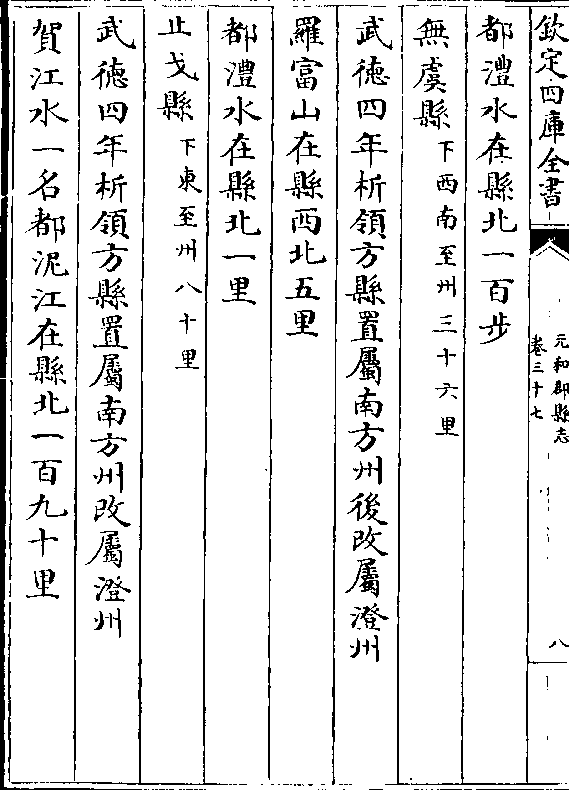 欽定四庫全書
元和郡縣志
卷三十七
八
都澧水在縣北一百步
無虞縣下西南至州三十六里
武徳四年析領方縣置屬南方州後改屬澄州
羅富山在縣西北五里
都澧水在縣北一里
止戈縣下東至州八十里
武徳四年析領方縣置屬南方州改屬澄州
賀江水一名都泥江在縣北一百九十里